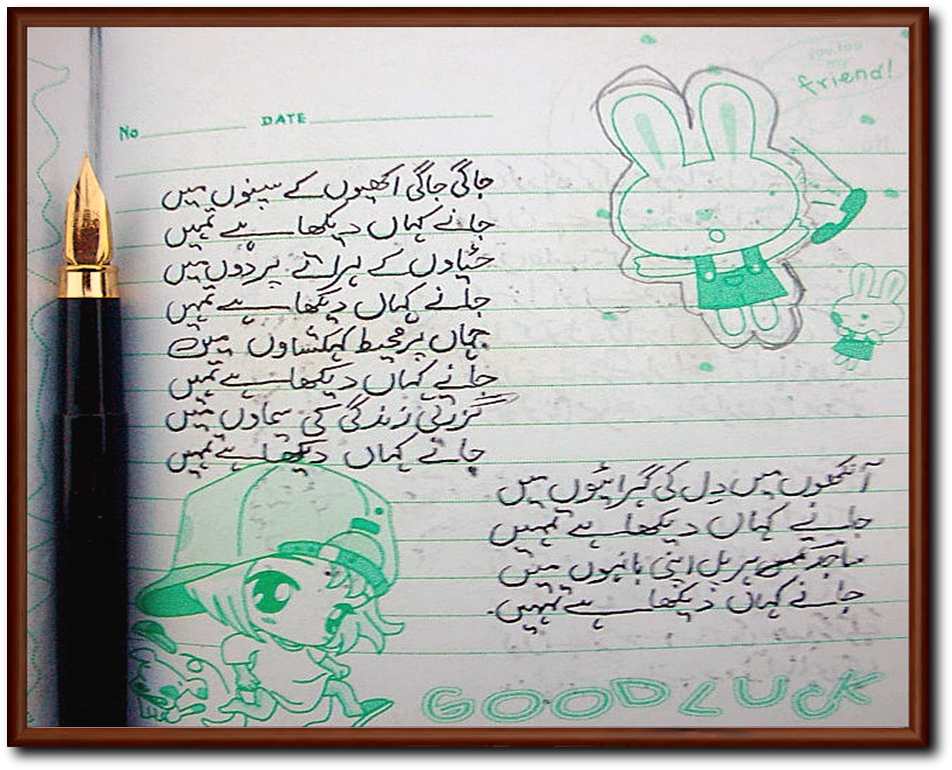 you too
my
friend!
No
DATE
جاگی جاگی اکھیوں کے سپنوں میں
جانے کہاں دیکھا ہے تمہیں
خیالوں کے لہراتے پردوں میں
جانے کہاں دیکھا ہے تمہیں
جہاں پر محیط کہکشاوں میں
جانے کہاں دیکھا ہے تمہیں
گزرتی زندگی کی سماوں میں
جانے کہاں دیکھا ہے تمہیں
آنکھوں میں دل کی گہرائیوں میں
جانے کہاں دیکھا ہے تمہیں
ہر پل اپنی بانہوں میں
جانے کہاں دیکھا ہے تمہیں
GOOD LUCK